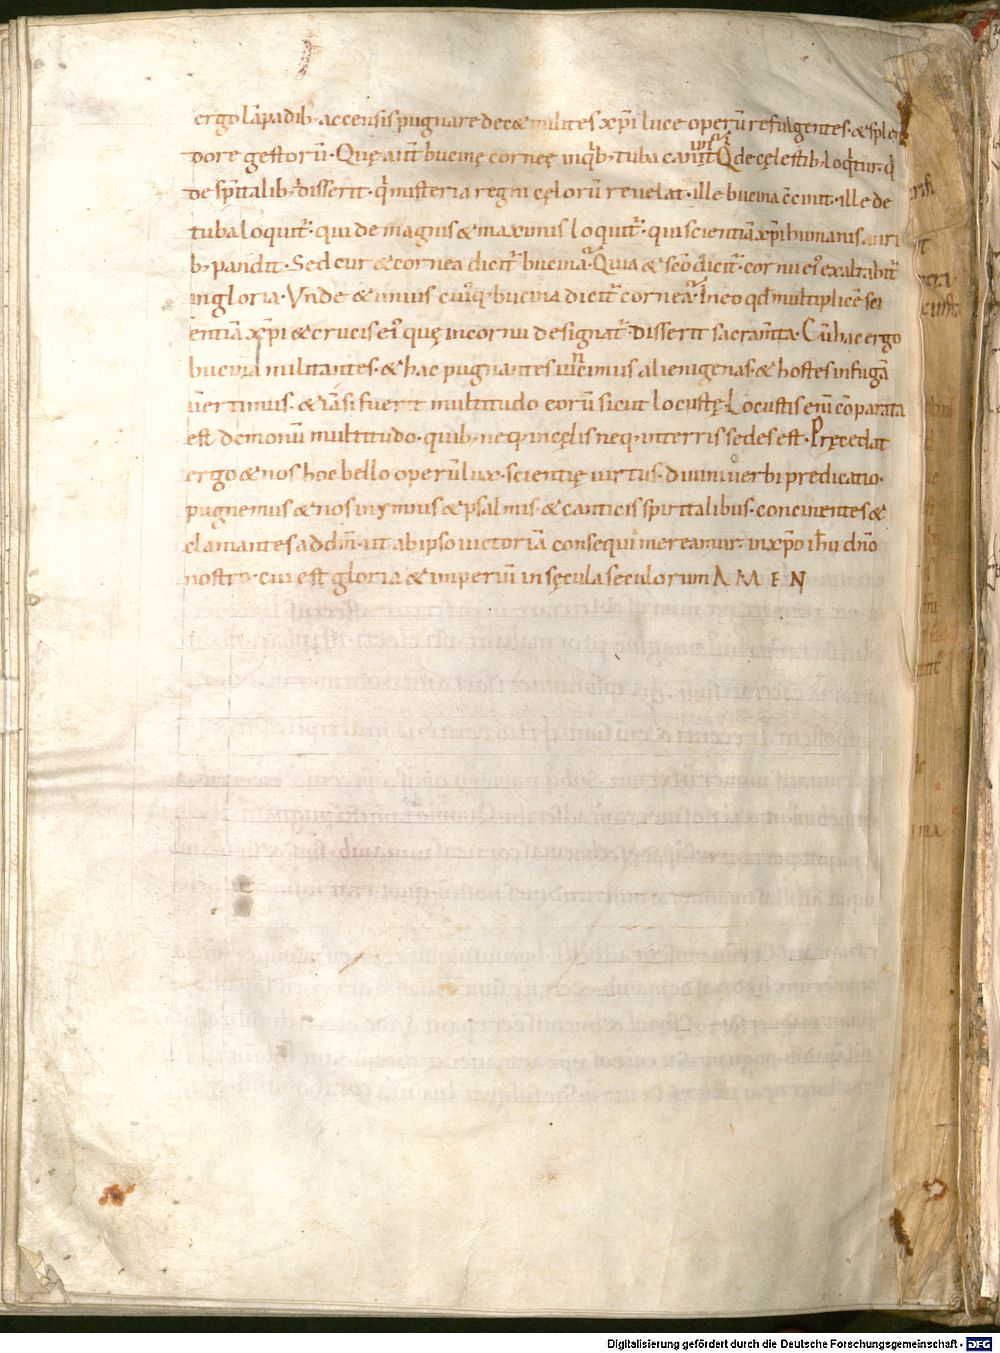 ergo lāpadib; accensis pugnare decet milites xp̄i luce operū refulgentes · & splen
dore gestorū · Quę aut̄ bucinę corneę in qb; tuba canit̄ Q de cęlestib; loqt̄ur · q
de sp̄italib; disserit · q misteria regni cęlorū revelat · ille bucina c̄cinit · ille de
tuba loquit̄ · qui de magnis & maximis loquit̄ · qui scientiā xp̄i humanis auri
b; pandit · Sed cur & cornea dicit̄ bucina · Quia & scō dicit̄ · cornu ei' exaltabit̄
in gloria · Unde & unius cui'q; bucina dicit̄ cornea · In eo qđ multiplicē sci
entiā xp̄i & crucis ei' quę in cornu designat̄ · disserit sacram̄ta · Cū hac ergo
bucina militantes · & hac pugnantes vincimus alienigenas · & hostes in fugā
v̄ertimus · & iāsi fuerit multitudo eorū sicut locustę · Locustis eni cōparata
est demonū multitudo · quib; neq; in cęlis neq; in terris sedes est · Pręcedat
ergo & nos hoc bello operū lux · scientię virtus · divini verbi predicatio ·
pugnemus & nos in ymnis & psalmis · & canticis spiritalibus · concinentes &
clamantes ad dm̄ · ut ab ipso victoriā consequi mereamur · in xp̄o ihū dn̄o
nostro · cui est gloria & imperiū in sęcula seculorum A M E N
Digitalisierung gefördert durch die Deutsche Forschungsgemeinschaft - DFG